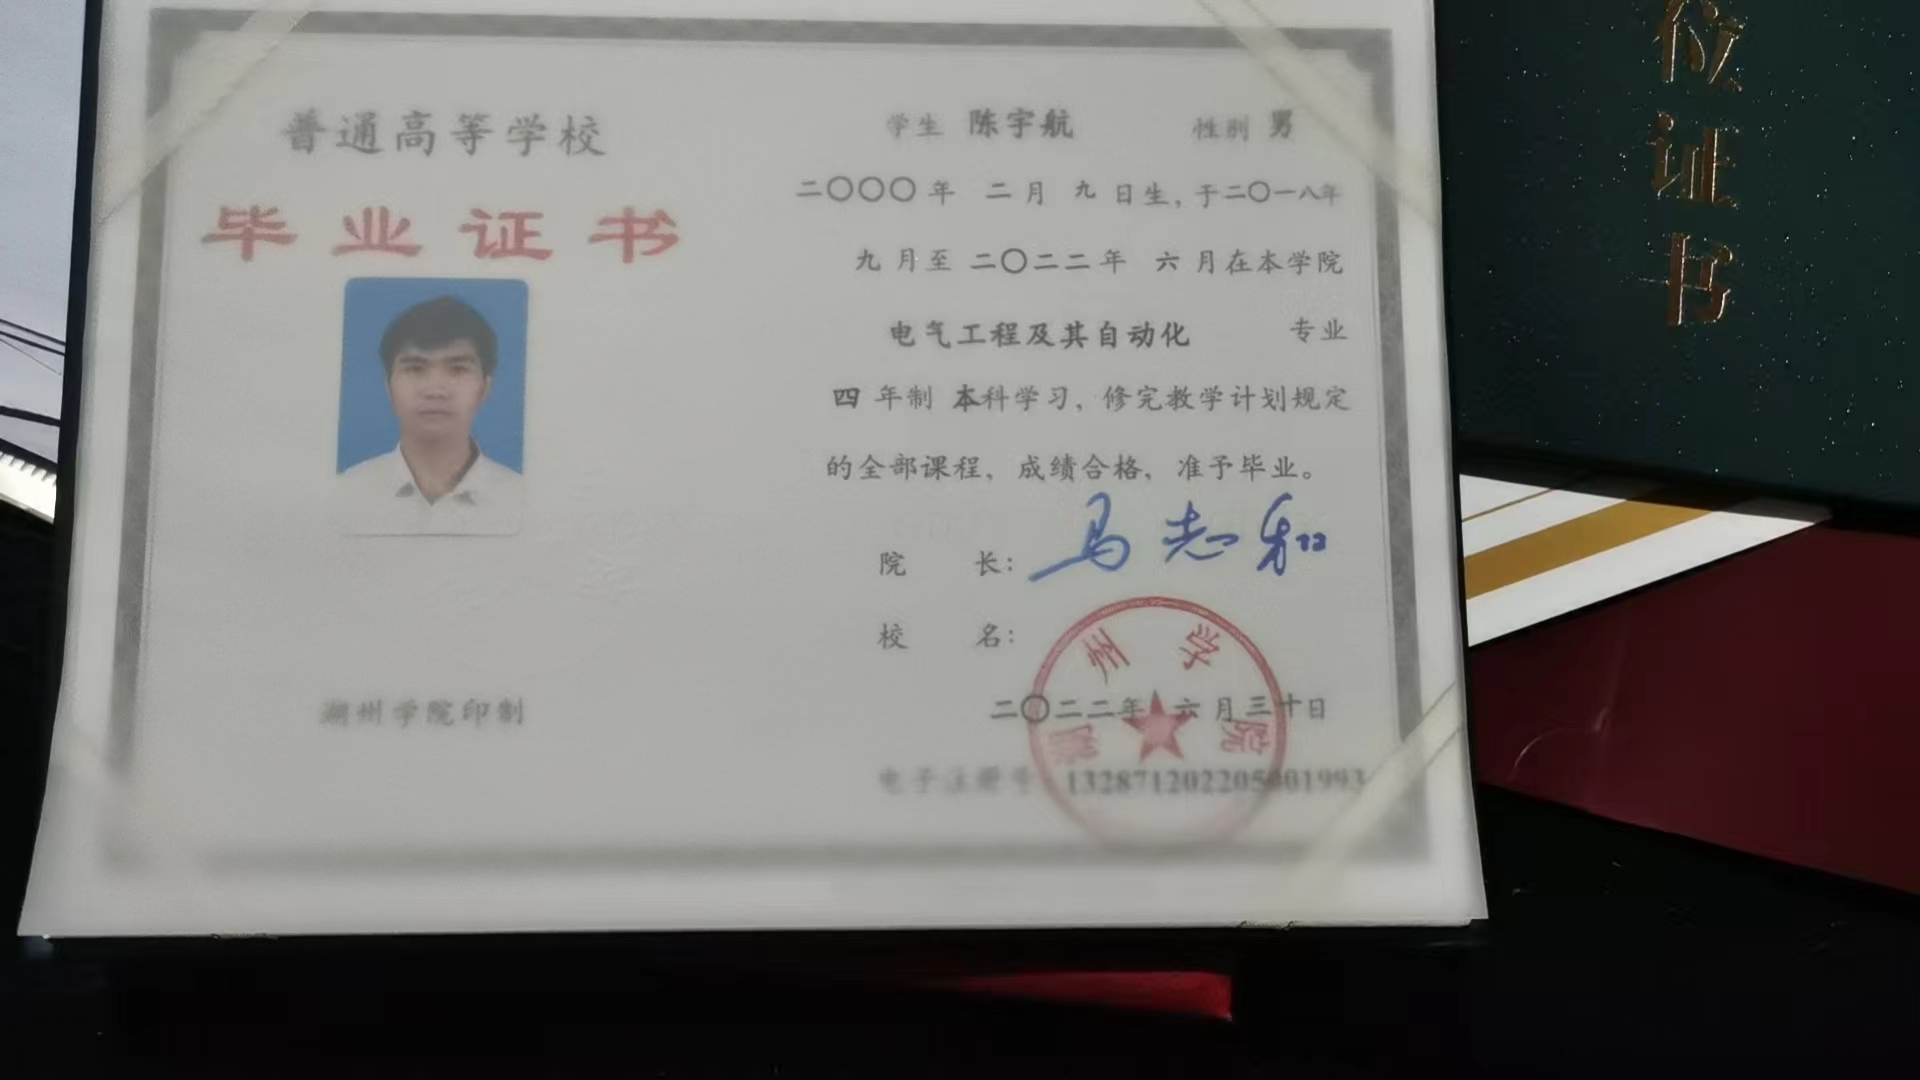 普通高等学校
毕业证书
湖州学院印制
学生 陈宇航 性别 男
二〇〇〇年 二月 九日生，于二〇一八年
九月至 二〇二二年 六月在本学院
电气工程及其自动化 专业
四 年制 本科学习，修完教学计划规定
的全部课程，成绩合格，准予毕业。
院 长： 马志和
校 名：
湖州学院
二〇二二年六月三十日
电子注册号 132871202205001993
位证书